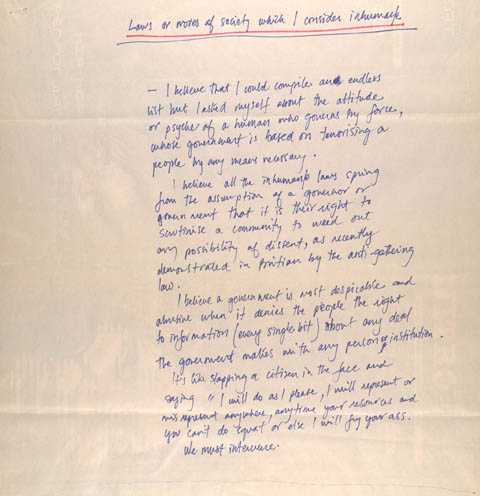 Laws or mores of society which I consider inhumane
— I believe that I could compile an endless
list but I asked myself about the attitude
or psyche of a human who governs by force,
whose government is based on terrorising a
people by any means necessary.
I believe all the inhumane laws spring
from the assumption of a governor or
government that it is their right to
scutinise a community to weed out
any possibility of dissent, as recently
demonstrated in by the anti-gathering
law.
I believe a government is most despicable and
abusive when it denies the people the right
to information (every single bit) about any deal
the government makes with any person or institution.
It's like slapping a citizen in the face and
saying "I will do as I please, I will represent or
misrepresent anywhere, anytime your resources and
you can't do squat or else I will fry your ass.
We must intervene.